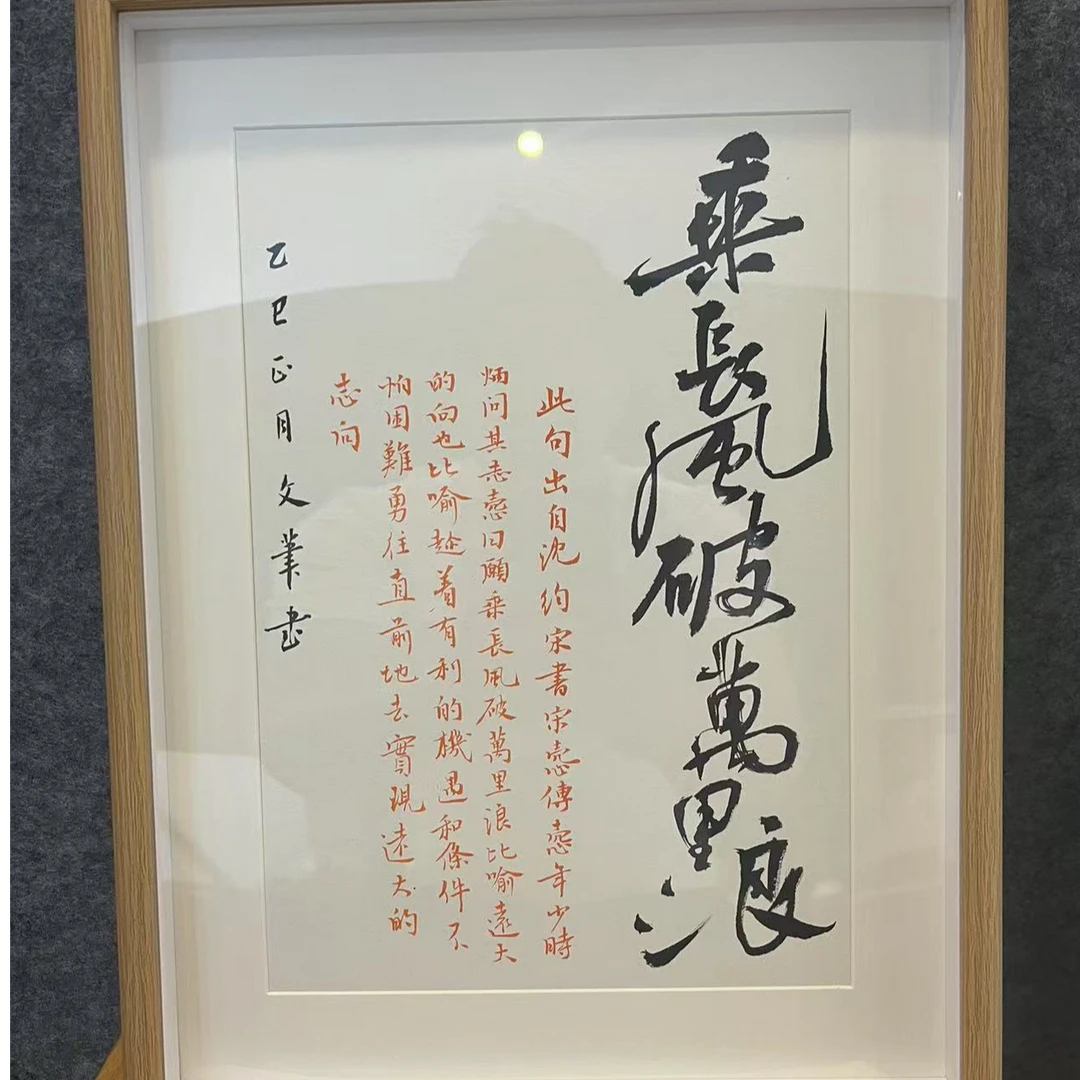 乘長風破萬里浪
此句出自沈約宋書宋慤傳慤年少時
炳問其志慤曰願乘長風破萬里浪比喻遠大
的向也比喻趁着有利的機遇和條件不
怕困難勇往直前地去實現遠大的
志向
乙巳正月文筆書